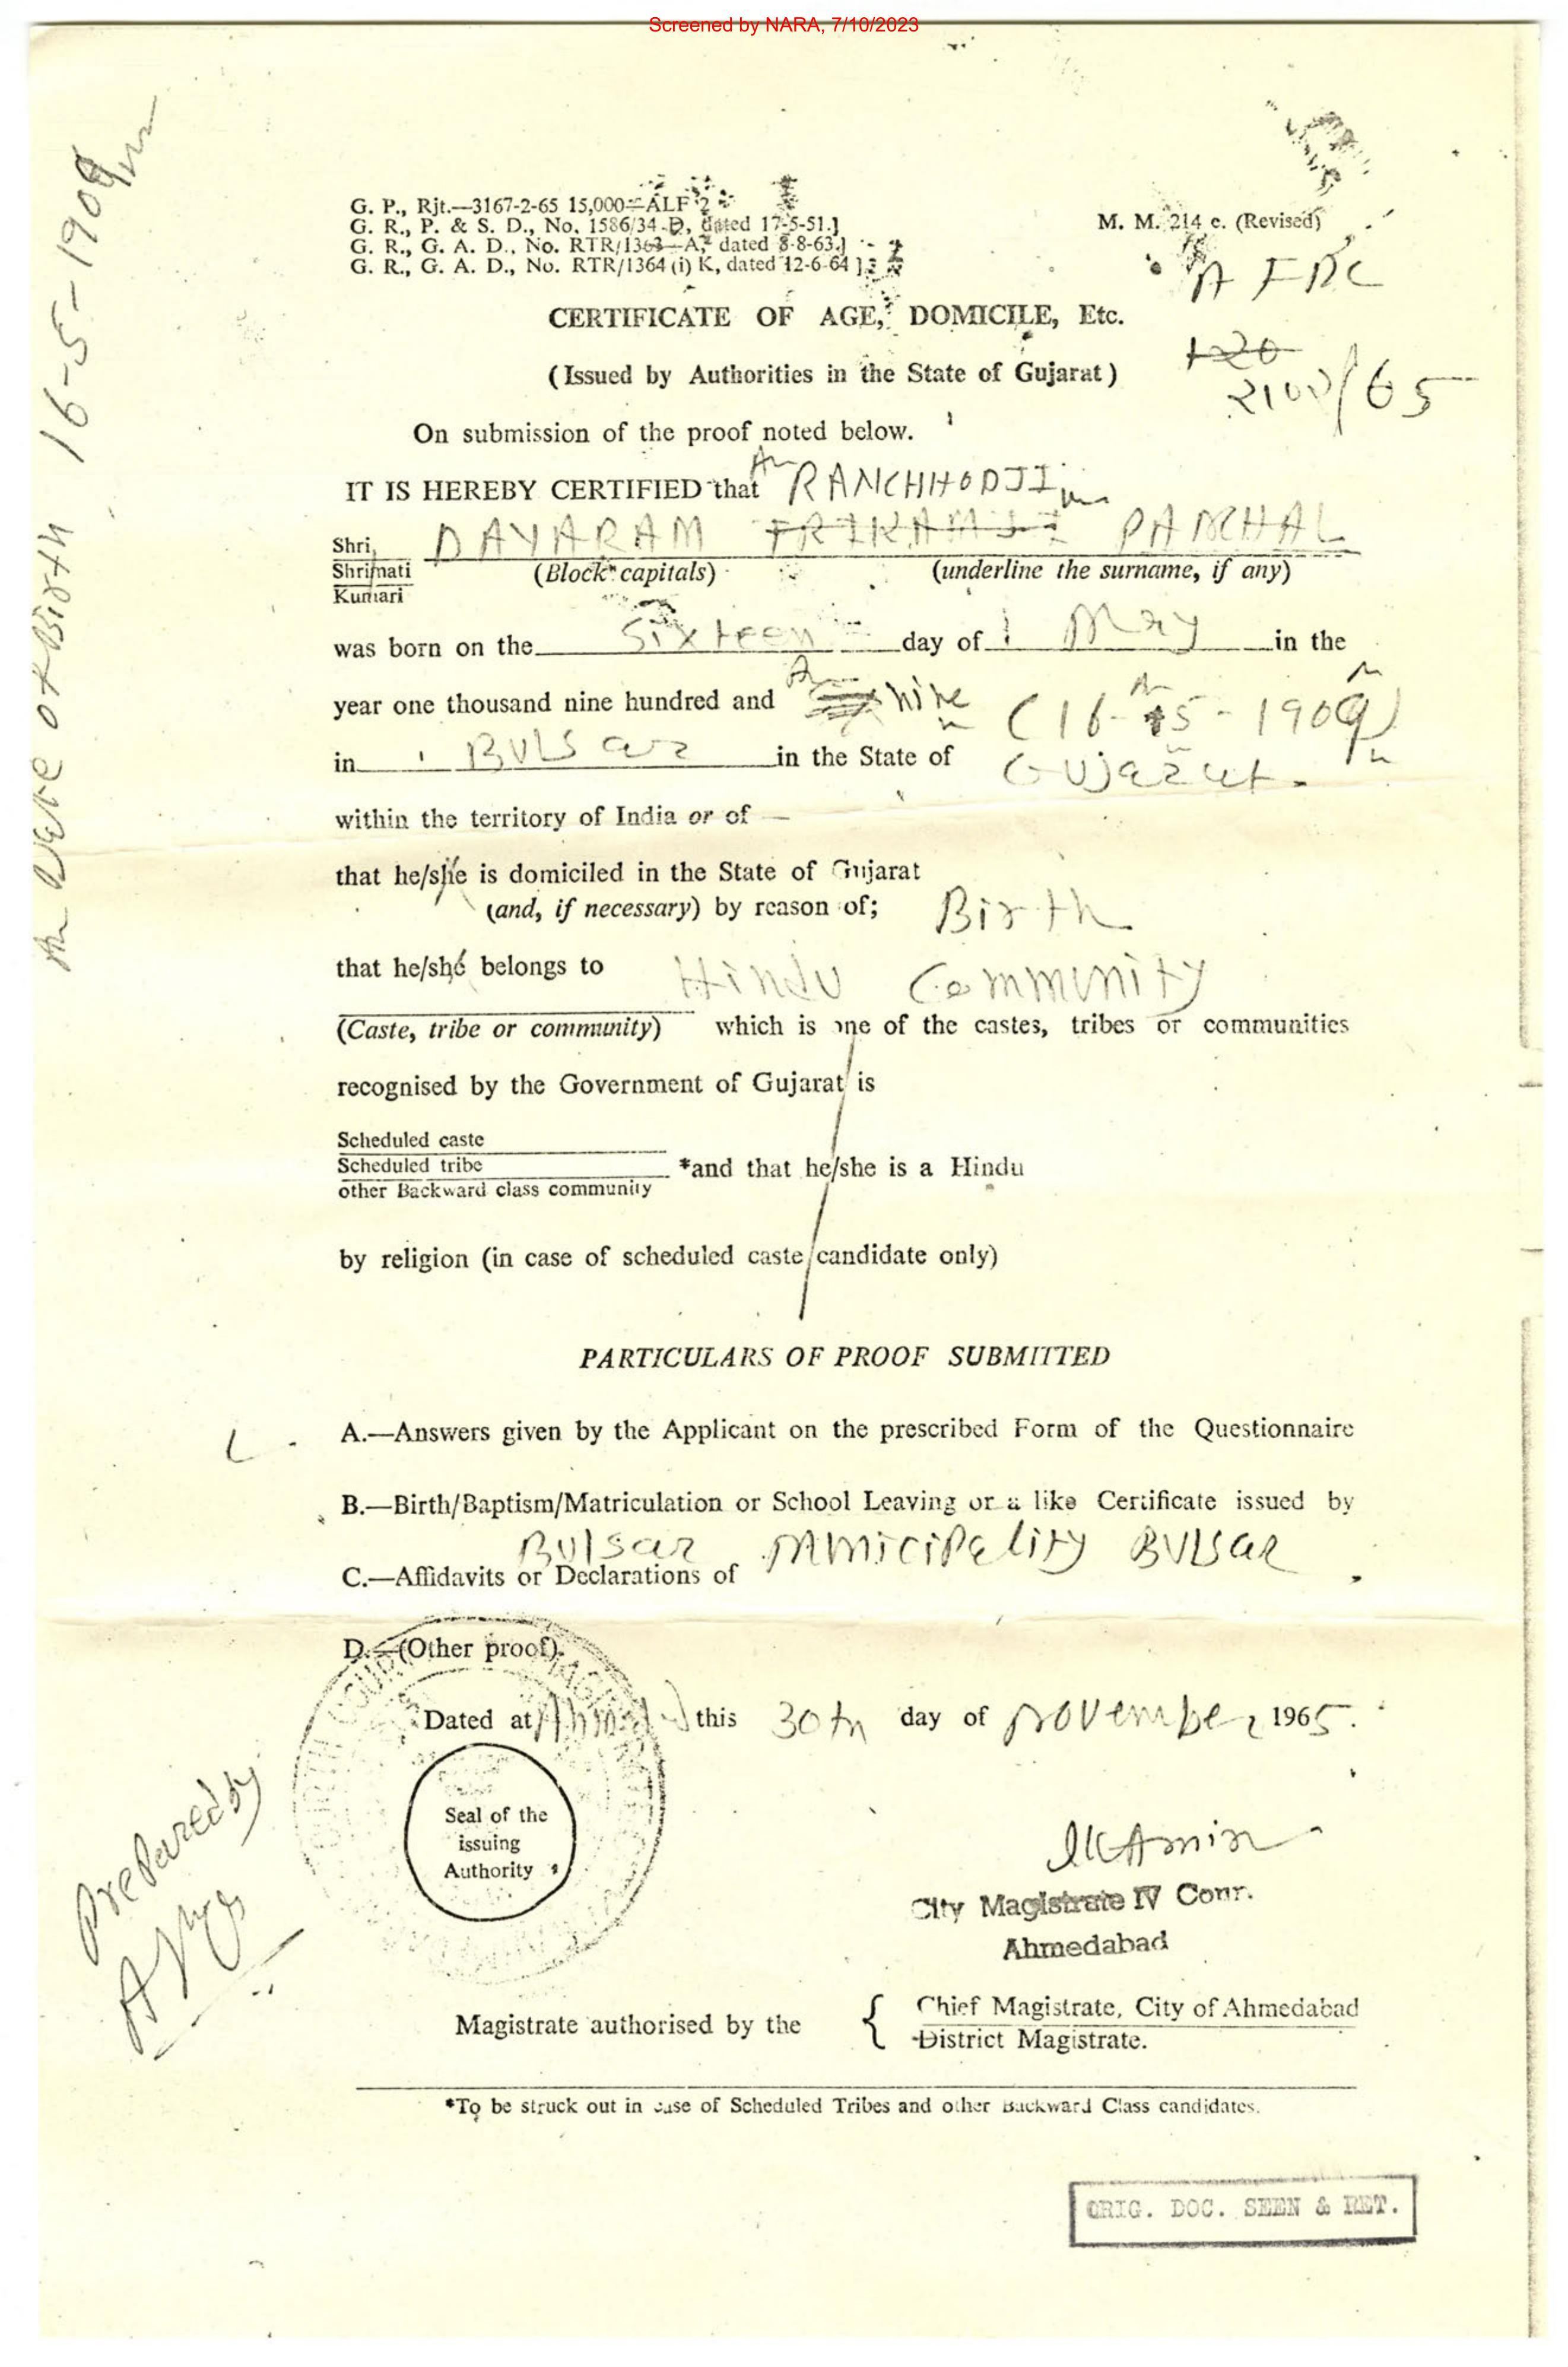 Screened by NARA, 7/10/2023
G. P., Rjt.—3167-2-65 15,000—ALF 2
G. R., P. & S. D., No. 1586/34-D, dated 17-5-51.]
G. R., G. A. D., No. RTR/1363—A, dated 8-8-63.]
G. R., G. A. D., No. RTR/1364 (i) K, dated 12-6-64 ]
M. M. 214 c. (Revised)
CERTIFICATE OF AGE, DOMICILE, Etc.
120
(Issued by Authorities in the State of Gujarat)
2100/65
On submission of the proof noted below.
IT IS HEREBY CERTIFIED that RANCHHODJI
Shri, DAYARAM TRIKAMJI PANCHAL
Shrimati (Block capitals) (underline the surname, if any)
Kumari
was born on the Sixteen day of May in the
year one thousand nine hundred and nine (16-5-1909)
in Bulsar in the State of Gujarat.
within the territory of India or of —
that he/she is domiciled in the State of Gujarat
(and, if necessary) by reason of; Birth
that he/she belongs to Hindu Community
(Caste, tribe or community) which is one of the castes, tribes or communities
recognised by the Government of Gujarat is
Scheduled caste
Scheduled tribe *and that he/she is a Hindu
other Backward class community
by religion (in case of scheduled caste candidate only)
PARTICULARS OF PROOF SUBMITTED
A.—Answers given by the Applicant on the prescribed Form of the Questionnaire
B.—Birth/Baptism/Matriculation or School Leaving or a like Certificate issued by
Bulsar Municipality Bulsar
C.—Affidavits or Declarations of
D.—(Other proof).
Dated at this 30th day of November 1965.
Seal of the
issuing
Authority
Prepared by
City Magistrate IV Court.
Ahmedabad
Magistrate authorised by the { Chief Magistrate, City of Ahmedabad
District Magistrate.
*To be struck out in case of Scheduled Tribes and other Backward Class candidates.
ORIG. DOC. SEEN & RET.
Date of Birth 16-5-1909